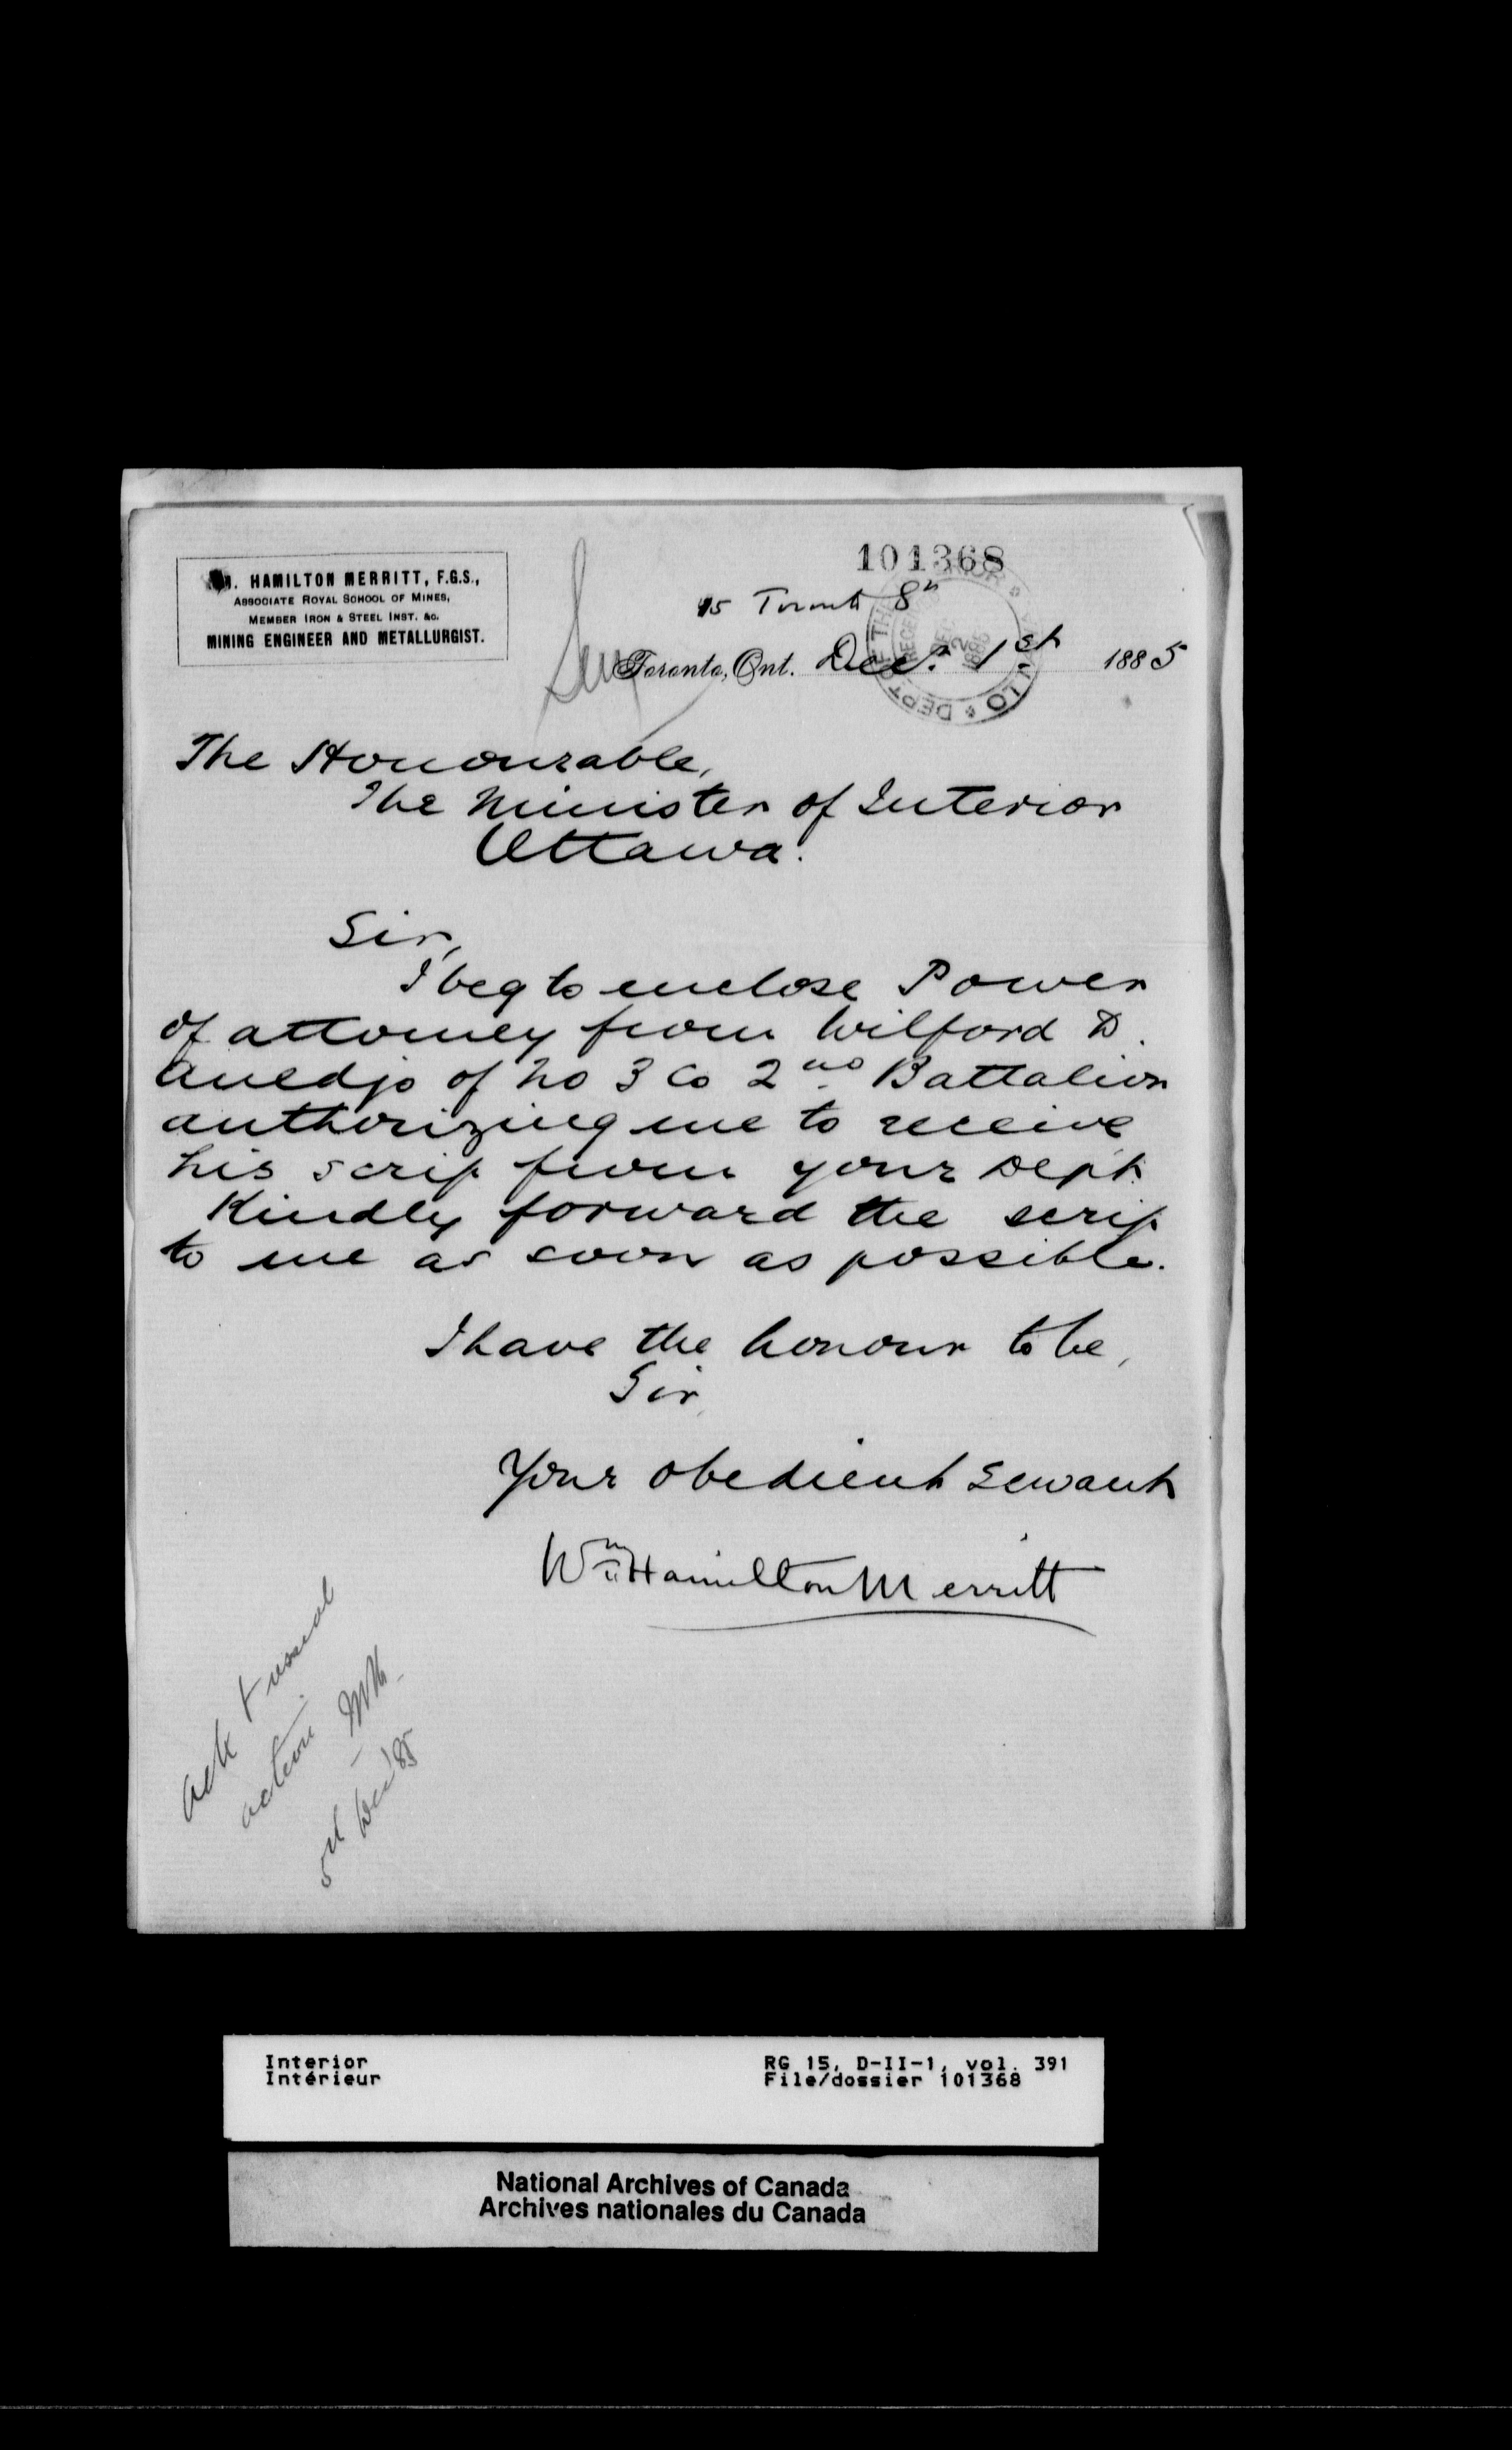 101368
Wm. HAMILTON MERRITT, F.G.S.,
ASSOCIATE ROYAL SCHOOL OF MINES,
MEMBER IRON & STEEL INST. &c.
MINING ENGINEER AND METALLURGIST.
15 Toronto St
Toronto, Ont. Dec. 1st 1885
The Honourable,
The Minister of Interior
Ottawa.
Sir,
I beg to enclose Power
of attorney from Wilford D.
Auldjo of No 3 Co 2nd Battalion
authorizing me to receive
his scrip from your Dept.
Kindly forward the scrip
to me as soon as possible.
I have the honour to be,
Sir,
Your obedient servant
Wm Hamilton Merritt
Ack & usual
action
5th Dec '85
Interior
Intérieur
RG 15, D-II-1, vol. 391
File/dossier 101368
National Archives of Canada
Archives nationales du Canada